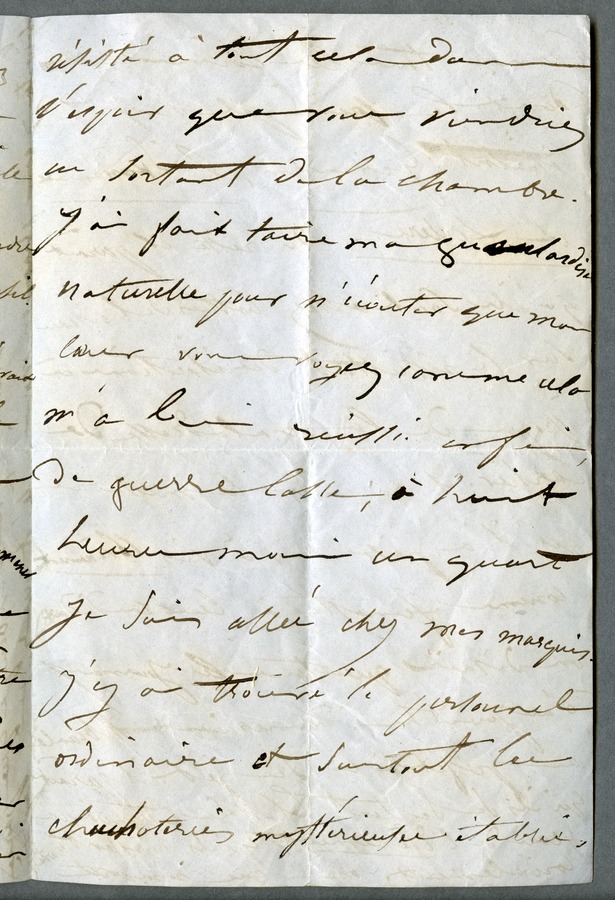 résisté à tout cela dans
l'espoir que vous viendriez
en sortant de la chambre.
J'ai fait taire ma guelardise
naturelle pour n'écouter que mon
cœur vous voyez comme cela
m'a bien réussi enfin,
de guerre lasse, à huit
heures moins un quart
je suis allé chez mes marquis.
j'y ai trouvé le personnel
ordinaire et surtout les
chuchoteries mystérieuses établi